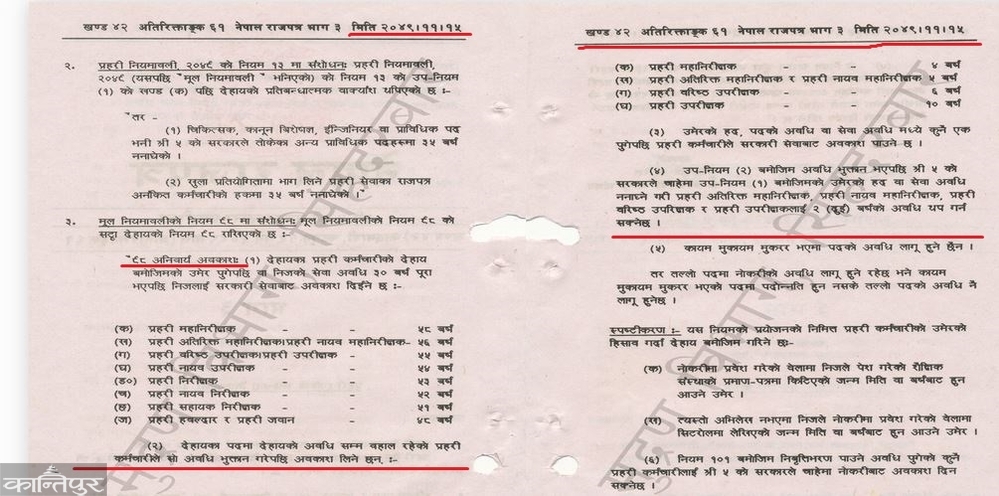 खण्ड ४२ अतिरिक्ताङ्क ६१ नेपाल राजपत्र भाग ३ मिति २०४९।११।१५
२. प्रहरी नियमावली, २०४९ को नियम १३ मा संशोधनः प्रहरी नियमावली,
२०४९ (यसपछि "मूल नियमावली" भनिएको) को नियम १३ को उप-नियम
(१) को खण्ड (क) पछि देहायको प्रतिबन्धात्मक वाक्यांश थपिएको छ :-
"तर -
(१) चिकित्सक, कानून विशेषज्ञ, ईन्जिनियर वा प्राविधिक पद
भनी श्री ५ को सरकारले तोकेका अन्य प्राविधिक पदहरूमा ३५ बर्ष
ननाघेको ।
(२) खुला प्रतियोगितामा भाग लिने प्रहरी सेवाका राजपत्र
अनंकित कर्मचारीको हकमा ३५ बर्ष ननाघेको ।"
३. मूल नियमावलीको नियम ९८ मा संशोधनः मूल नियमावलीको नियम ९८ को
सट्टा देहायको नियम ९८ राखिएको छ :-
"९८ अनिवार्य अवकाशः (१) देहायका प्रहरी कर्मचारीको देहाय
बमोजिमको उमेर पुगेपछि वा निजको सेवा अवधि ३० बर्ष पूरा
भएपछि निजलाई सरकारी सेवाबाट अवकाश दिईने छ :-
(क) प्रहरी महानिरीक्षक - - ५८ बर्ष
(ख) प्रहरी अतिरिक्त महानिरीक्षक/प्रहरी नायव महानिरीक्षक- ५६ बर्ष
(ग) प्रहरी वरिष्ठ उपरीक्षक/प्रहरी उपरीक्षक - ५५ बर्ष
(घ) प्रहरी नायव उपरीक्षक - - ५४ बर्ष
(ङ०) प्रहरी निरीक्षक - - ५३ बर्ष
(च) प्रहरी नायव निरीक्षक - - ५२ बर्ष
(छ) प्रहरी सहायक निरीक्षक - - ५१ बर्ष
(ज) प्रहरी हवल्दार र प्रहरी जवान - ४८ बर्ष
(२) देहायका पदमा देहायको अवधि सम्म वहाल रहेको प्रहरी
कर्मचारीले सो अवधि भुक्तान गरेपछि अवकाश लिने छन् :-
कान्तिपुर
खण्ड ४२ अतिरिक्ताङ्क ६१ नेपाल राजपत्र भाग ३ मिति २०४९।११।१५
(क) प्रहरी महानिरीक्षक - - ४ बर्ष
(ख) प्रहरी अतिरिक्त महानिरीक्षक र प्रहरी नायव महानिरीक्षक ५ बर्ष
(ग) प्रहरी वरिष्ठ उपरीक्षक - - ६ बर्ष
(घ) प्रहरी उपरीक्षक - - १० बर्ष
(३) उमेरको हद, पदको अवधि वा सेवा अवधि मध्ये कुनै एक
पुगेपछि प्रहरी कर्मचारीले सरकारी सेवाबाट अवकाश पाउने छ ।
(४) उप-नियम (२) बमोजिम अवधि भुक्तान भएपछि श्री ५ को
सरकारले चाहेमा उप-नियम (१) बमोजिमको उमेरको हद वा सेवा अवधि
ननाघ्ने गरी प्रहरी अतिरिक्त महानिरीक्षक, प्रहरी नायव महानिरीक्षक, प्रहरी
वरिष्ठ उपरिक्षक र प्रहरी उपरीक्षकलाई २ (दूई) बर्षको अवधि थप गर्न
सक्नेछ ।
(५) कायम मुकायम मुकरर भएमा पदको अवधि लागू हुने छैन ।
तर तल्लो पदमा नोकरीको अवधि लागू हुने रहेछ भने कायम
मुकायम मुकरर भएको पदमा पदोन्नति हुन नसके तल्लो पदको अवधि नै
लागू हुनेछ ।
स्पष्टीकरण :- यस नियमको प्रयोजनको निमित्त प्रहरी कर्मचारीको उमेरको
हिसाव गर्दा देहाय बमोजिम गरिने छः-
(क) नोकरीमा प्रवेश गरेको वेलामा निजले पेश गरेको शैक्षिक
संस्थाको प्रमाण-पत्रमा किटिएको जन्म मिति वा बर्षबाट हुन
आउने उमेर ।
(ख) त्यस्तो अभिलेख नभएमा निजले नोकरीमा प्रवेश गरेको वेलामा
सिटरोलमा लेखिएको जन्म मिति वा बर्षबाट हुन आउने उमेर ।
(६) नियम १०१ बमोजिम निवृत्तिभरण पाउने अवधि पुगेको कुनै
प्रहरी कर्मचारीलाई श्री ५ को सरकारले चाहेमा नोकरीबाट अवकाश दिन
सक्नेछ ।